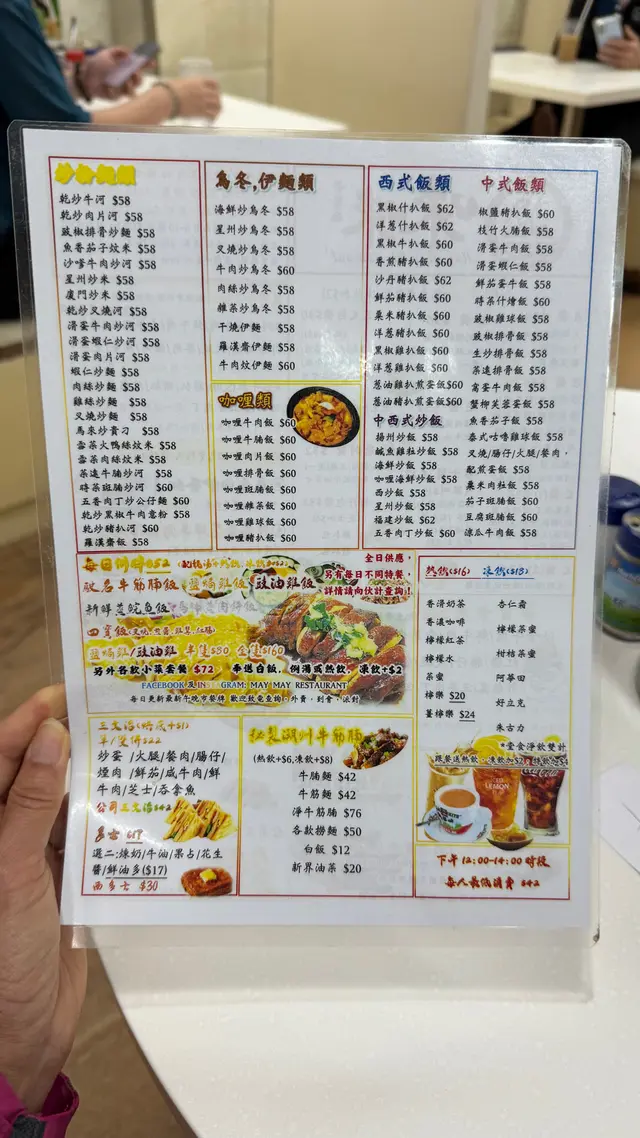 炒粉麵類
乾炒牛河 $58
乾炒肉片河 $58
豉椒排骨炒麵 $58
魚香茄子炆米 $58
沙嗲牛肉炒河 $58
星州炒米 $58
廈門炒米 $58
乾炒叉燒河 $58
滑蛋牛肉炒河 $58
滑蛋蝦仁炒河 $58
滑蛋肉片河 $58
蝦仁炒麵 $58
肉絲炒麵 $58
雞絲炒麵 $58
叉燒炒麵 $58
馬來炒貴刁 $58
雪菜火鴨絲炆米 $58
雪菜肉絲炆米 $58
菜遠牛腩炒河 $58
時菜班腩炒河 $58
五香肉丁炒公仔麵 $60
乾炒黑椒牛肉意粉 $58
乾炒豬扒河 $60
羅漢齋飯 $58
烏冬,伊麵類
海鮮炒烏冬 $58
星州炒烏冬 $58
叉燒炒烏冬 $58
牛肉炒烏冬 $60
肉絲炒烏冬 $58
雜菜炒烏冬 $58
干燒伊麵 $58
羅漢齋伊麵 $58
牛肉炆伊麵 $60
咖喱類
咖喱牛肉飯 $60
咖喱牛腩飯 $60
咖喱肉片飯 $60
咖喱排骨飯 $60
咖喱斑腩飯 $60
咖喱雜菜飯 $60
咖喱雞球飯 $60
咖喱豬扒飯 $60
西式飯類
黑椒什扒飯 $62
洋蔥什扒飯 $62
黑椒牛扒飯 $60
香煎豬扒飯 $60
沙丹豬扒飯 $62
鮮茄豬扒飯 $60
粟米豬扒飯 $60
洋蔥豬扒飯 $60
黑椒雞扒飯 $60
洋蔥雞扒飯 $60
蔥油雞扒煎蛋飯$60
蔥油豬扒煎蛋飯$60
中西式炒飯
揚州炒飯 $58
鹹魚雞粒炒飯 $58
海鮮炒飯 $58
咖喱海鮮炒飯 $58
西炒飯 $58
星州炒飯 $58
福建炒飯 $62
五香肉丁炒飯 $60
中式飯類
椒鹽豬扒飯 $60
枝竹火腩飯 $58
滑蛋牛肉飯 $58
滑蛋蝦仁飯 $58
鮮茄蛋牛飯 $58
時菜什燴飯 $60
豉椒雞球飯 $58
豉椒排骨飯 $58
生炒排骨飯 $58
菜遠排骨飯 $58
窩蛋牛肉飯 $58
蟹柳芙蓉蛋飯 $58
魚香茄子飯 $58
泰式咕嚕雞球飯 $58
叉燒/腸仔/火腿/餐肉，
配煎蛋飯 $58
粟米肉粒飯 $58
茄子班腩飯 $60
豆腐班腩飯 $60
涼瓜牛肉飯 $58
全日供應，
另有每日不同特餐，
詳情請向伙計查詢！
馳名牛筋腩飯 豉油雞飯
四寶飯
鹽焗雞/豉油雞 半隻$80 全隻$160
另外各款小菜套餐 $72 奉送白飯，例湯或熱飲，凍飲+$2
FACEBOOK 及 INSTAGRAM: MAY MAY RESTAURANT
熱飲($16) 凍飲($18)
香滑奶茶
香濃咖啡
檸檬紅茶
檸檬水
菜蜜
檸樂 $20
薑樂 $24
杏仁霜
檸檬茶蜜
柑桔茶蜜
阿華田
好立克
朱古力
*堂食淨飲雙計
下午 12:00-14:00 時段
每人最低消費 $42
三文治(烘底+$1)
單/雙拼$22
炒蛋 /火腿/餐肉/腸仔/
煙肉 /鮮茄/咸牛肉/鮮
牛肉/芝士/吞拿魚
公司三文治$42
多士 $17
選二:煉奶/牛油/果占/花生
醬/鮮油多($17)
西多士 $30
秘製潮州牛筋腩
(熱飲+$6,凍飲+$8)
牛腩麵 $42
牛筋麵 $42
淨牛筋腩 $76
各款撈麵 $50
白飯 $12
新界油菜 $20